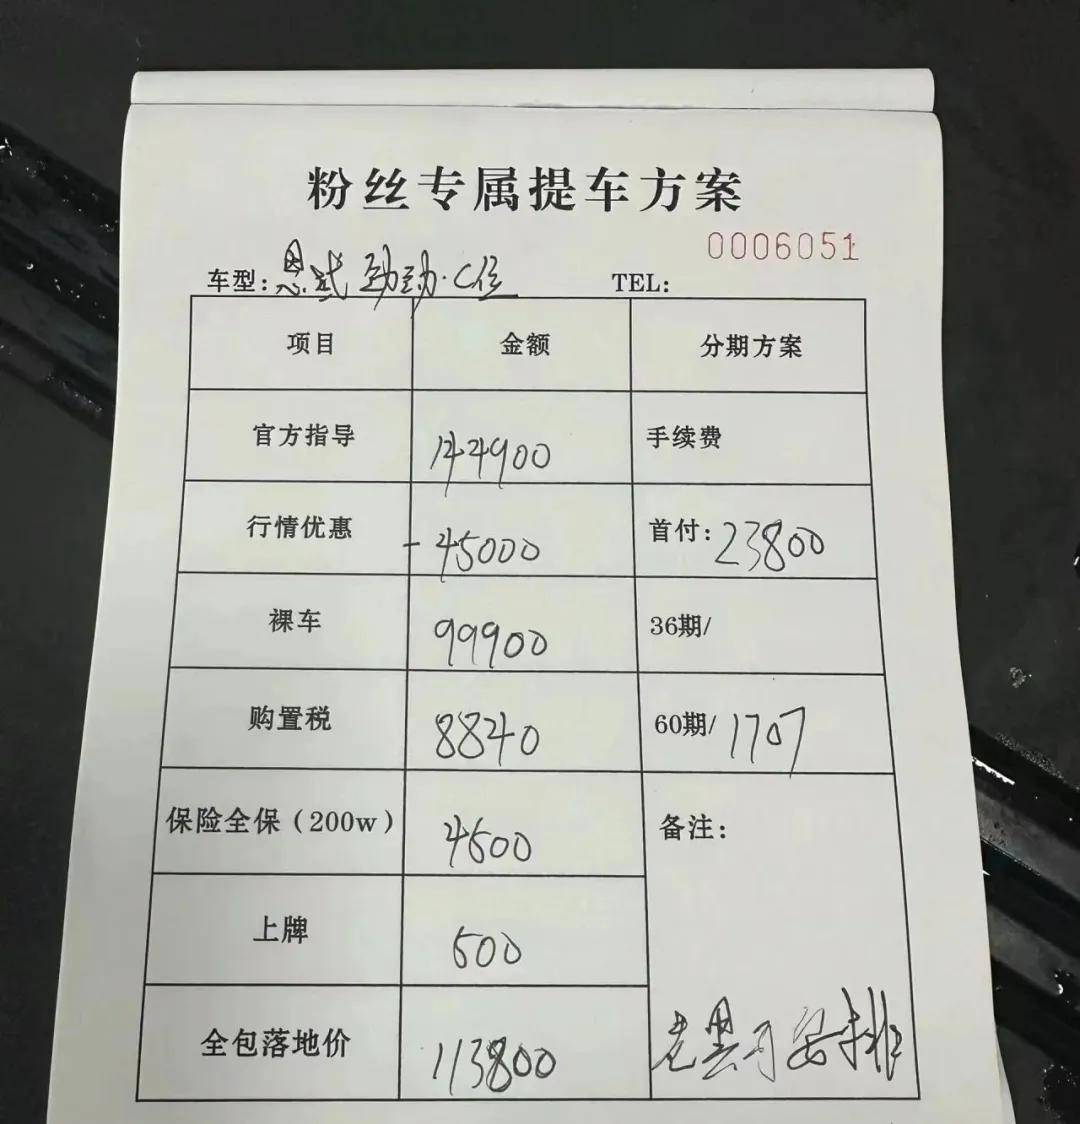 粉丝专属提车方案
0006051
车型：思域 劲动·C位 TEL：
项目 金额 分期方案
官方指导 144900 手续费
行情优惠 -45000 首付：23800
裸车 99900 36期/
购置税 8840 60期/1707
保险全保（200w） 4500 备注：
上牌 500
全包落地价 113800 老昙可安排